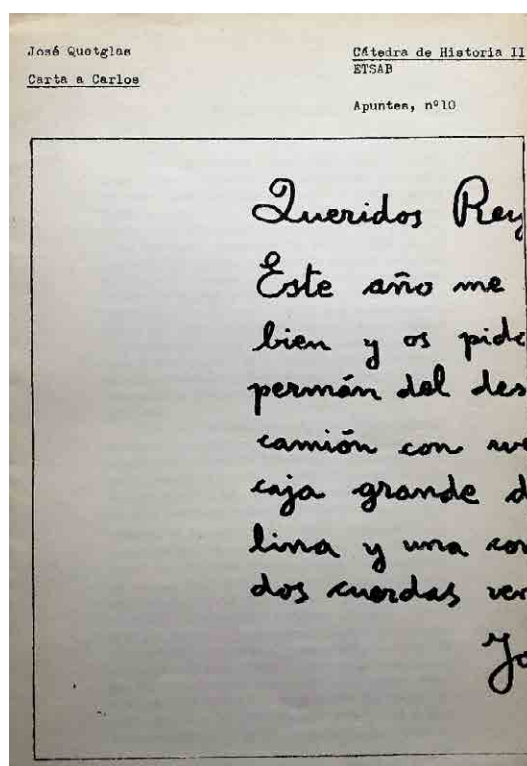 José Quetglas
Carta a Carlos
Cátedra de Historia II
ETSAB
Apuntes, nº10
Queridos Rey
Este año me
bien y os pido
permán del des
camión con rue
caja grande d
lina y una cor
dos cuerdas ver
Jo